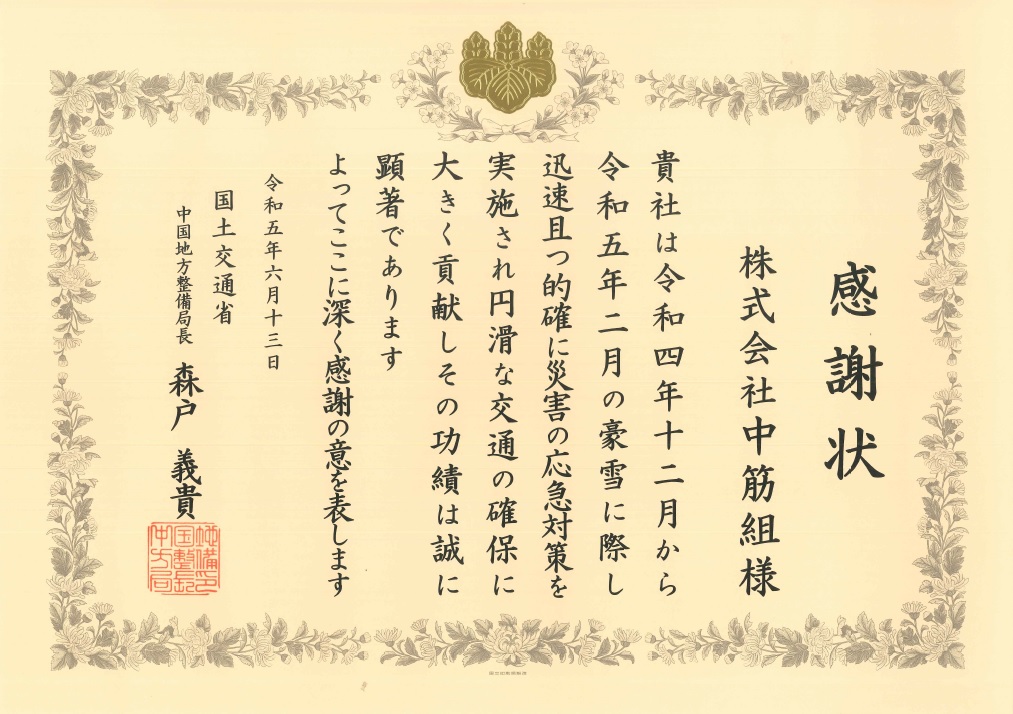 感謝状
株式会社中筋組様
貴社は令和四年十二月から
令和五年二月の豪雪に際し
迅速且つ的確に災害の応急対策を
実施され円滑な交通の確保に
大きく貢献しその功績は誠に
顕著であります
よってここに深く感謝の意を表します
令和五年六月十三日
国土交通省
中国地方整備局長 森戸 義貴